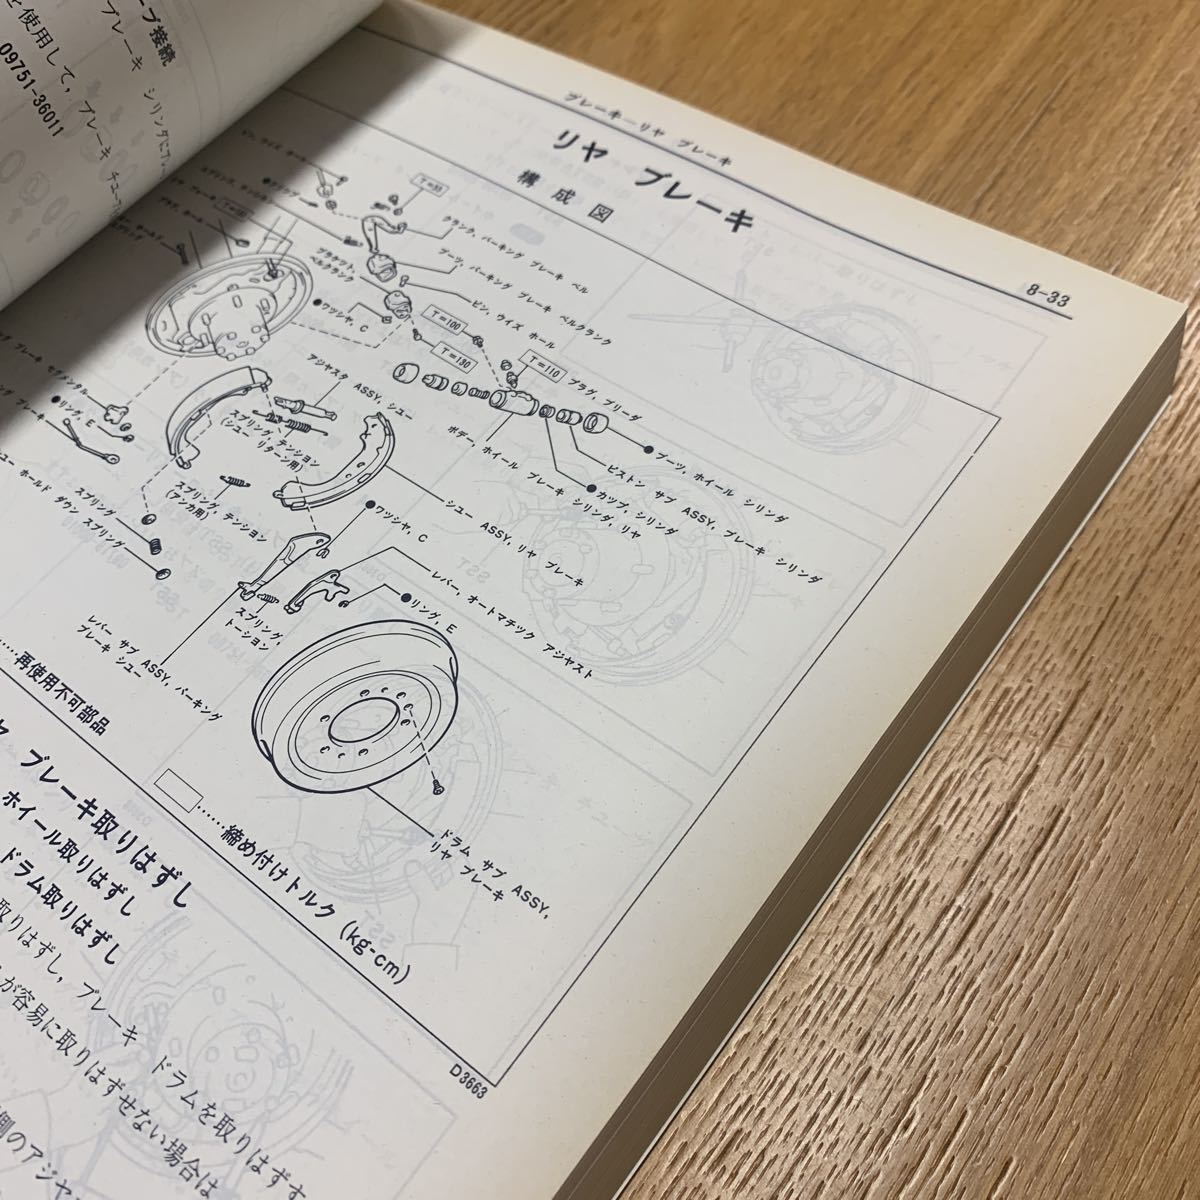 ープ接続
ブレーキ シリンダにブレ
を使用して，ブレーキ チューブ
09751-36011
ブレーキーリヤ ブレーキ
8-33
リヤ ブレーキ
構成図
T=55
クランク，パーキング ブレーキ ベル
ブーツ，パーキング ブレーキ ベルクランク
ブラケット，
ベルクランク
ピン，ウイズ ホール
●ワッシャ，C
T=100
T=130
T=110
プラグ，ブリーダ
●ブーツ，ホイール シリンダ
ピストン サブ ASSY，ブレーキ シリンダ
●カップ，シリンダ
ボデー，ホイール ブレーキ シリンダ，リヤ
アジャスタ ASSY，シュー
スプリング，テンション
(シュー リターン用)
●リング，E
スプリング，テンション
(アンカ用)
シュー ASSY，リヤ ブレーキ
●ワッシャ，C
レバー，オートマチック アジャスト
●リング，E
スプリング，
トーション
スプリング
ュー ホールド ダウン スプリング
レバー サブ ASSY，パーキング
ブレーキ シュー
ドラム サブ ASSY，
リヤ ブレーキ
……再使用不可部品
……締め付けトルク (kg-cm)
D3663
ヤ ブレーキ取りはずし
ホイール取りはずし
ドラム取りはずし
取りはずし，ブレーキ ドラムを取りはず
が容易に取りはずせない場合は
側のアジャ